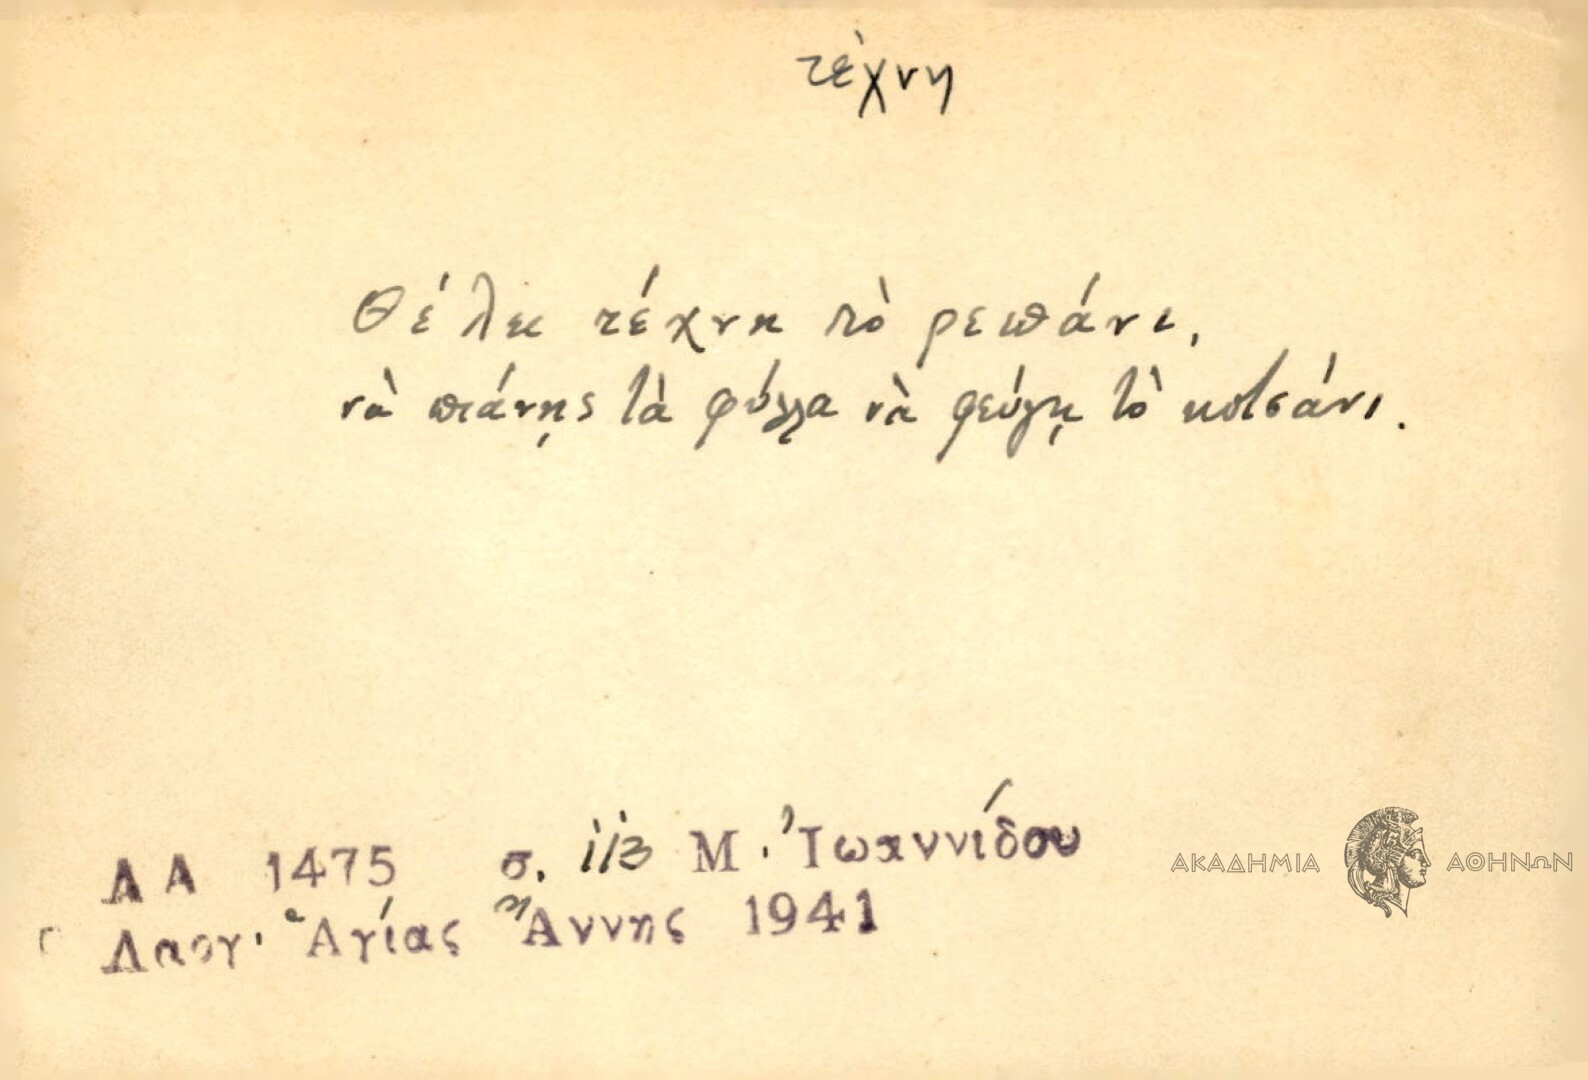 τέχνη
Θέλει τέχνη τὸ ρεπάνι,
νὰ πιάνῃς τὰ φύλλα νὰ φεύγῃ τὸ κοτσάνι.
ΛΑ 1475 σ. 113 Μ. Ἰωαννίδου
Λαογ. Ἁγίας Ἄννης 1941
ΑΚΑΔΗΜΙΑ ΑΘΗΝΩΝ